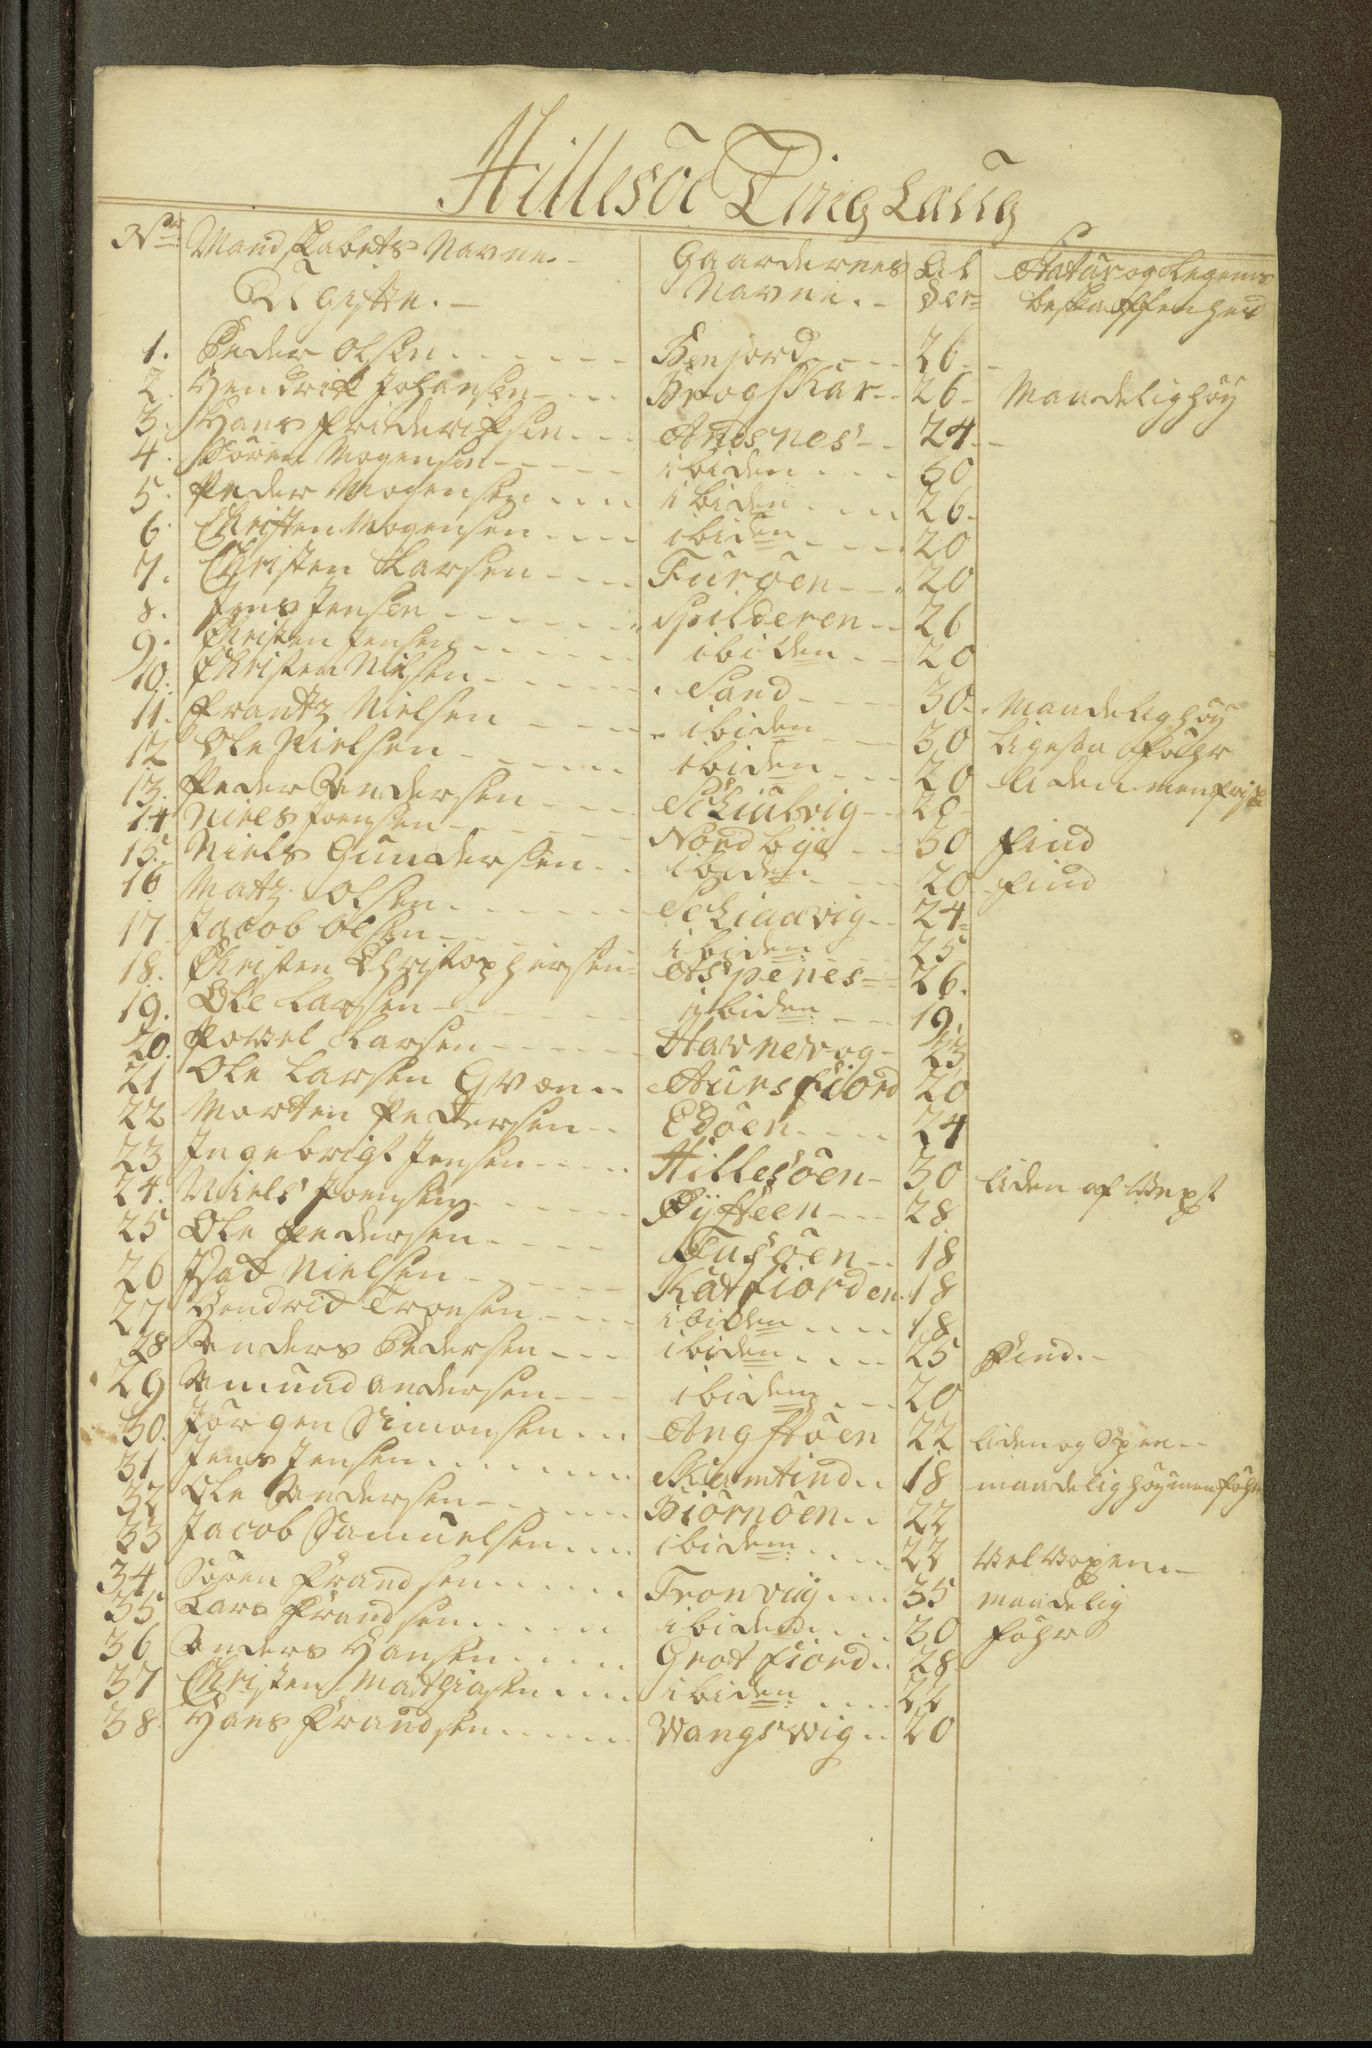 Hillesöe Ting Laug
No Mandskabets Navne. Gaardernes Al Statur og Legems
Ugifte. Navne. der beskaffenhed
1. Peder Olsen Benjord 26
2. Hendrick Johansen Brogskar 26 Maadelig höy
3. Hans Friderichsen Andsnes 24
4. Sören Mogensen ibidem 30
5. Peder Mogensen ibidem 26
6. Christen Mogensen ibidem 20
7. Christen Larsen Furöen 20
8. Jens Jensen Spilderen 26
9. Christen Jensen ibidem 20
10. Christen Nilsen Sand 30 Maadelig höy
11. Frantz Nielsen ibidem 30 ligesaa föhr
12 Ole Nielsen ibidem 20 liden men frisk
13. Peder Andersen Schiulvig 20
14 Niels Joensen Nordbye 30 Find
15. Niels Gundersen ibidem 20 Find
16 Matz Olsen Schiaavig 24
17 Jacob Olsen ibidem 25
18. Christen Christophersen Aspenes 26.
19. Ole Larsen ibidem 19.
20. Povel Larsen Havnevog 23
21 Ole Larsen Qvæn Aursfiord 20
22 Morten Pedersen Edöen 24
23 Ingebrigt Jensen Hillesöen 30 liden af Vext
24. Niels Joensen 28
25 Ole Pedersen Tusöen 18
26 Nielsen Katfiorden 18
27 Hendrich Tronsen ibidem 18
28 Anders Pedersen ibidem 25 Find.
29 Amund Andersen ibidem 20
30. Jörgen Simonsen Angstöen 22 liden og
31 Jens Jensen Skamtind 18 maadelig höy men föhr
32 Ole Andersen Biörnöen 22
33 Jacob Samuelsen ibidem 22 Vel Voxen
34 Sören Frandsen Tronvig 35 maadelig
35 Lars Frandsen ibidem 30 föhr
36 Anders Hansen Grotfiord 28
37 Christen Mathiasen ibidem 22
38. Hans Frandsen Wangsvig 20